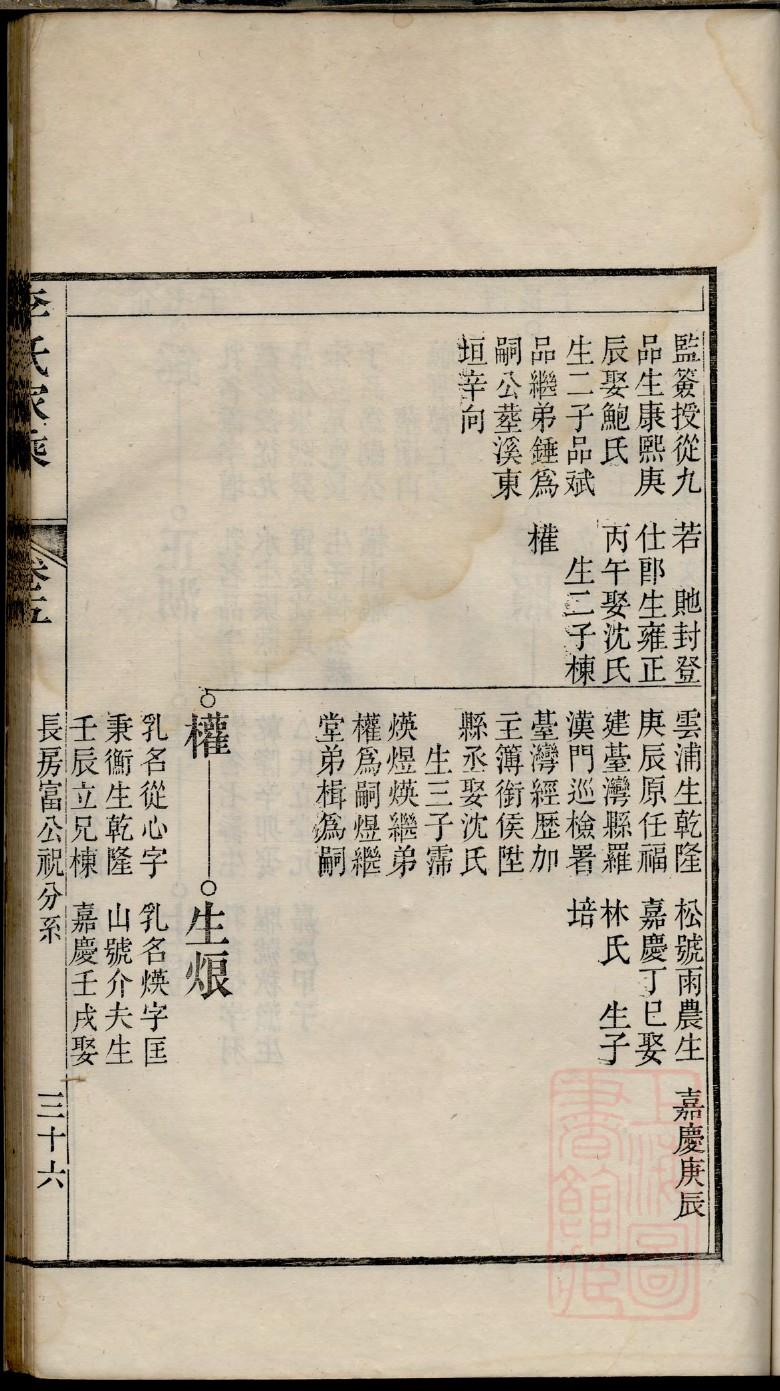 監簽授從九
品生康熙庚
辰娶鮑氏
生二子品斌
品繼弟錘爲
嗣公塟溪東
垣辛向
若　貤封登
仕郎生雍正
丙午娶沈氏
生二子棟
權
雲浦生乾隆
庚辰原任福
建臺灣縣羅
漢門巡檢署
臺灣經歷加
主簿銜俟陞
縣丞娶沈氏
生三子霈
煐煜煐繼弟
權爲嗣煜繼
堂弟楫爲嗣
松號雨農生
嘉慶丁巳娶
林氏　生子
培
嘉慶庚辰
權
乳名從心字
秉衡生乾隆
壬辰立兄棟
生烺
乳名煐字匡
山號介夫生
嘉慶壬戌娶
李氏家乘
卷五
長房富公祝分系
三十六
上海圖書館藏